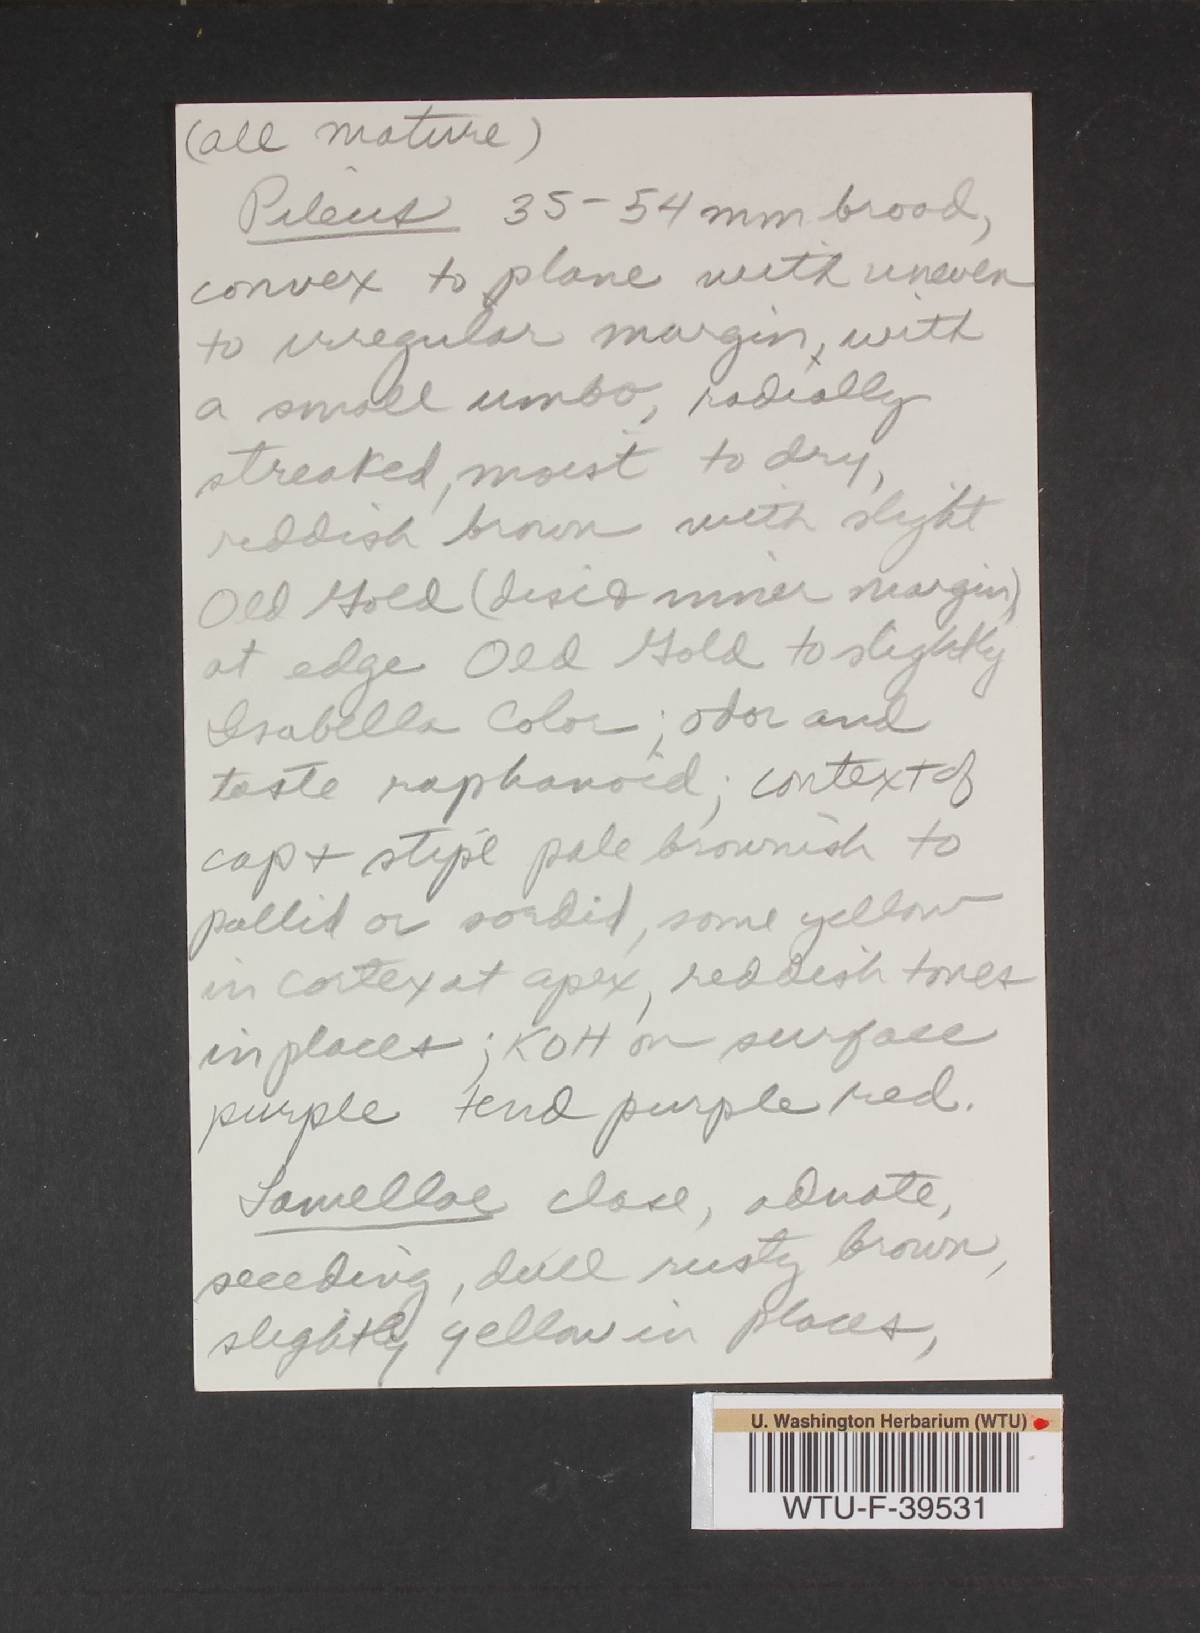 (all mature)
Pileus 35-54 mm broad,
convex to plane with uneven
to irregular margin, with
a small umbo, radially
streaked, moist to dry,
reddish brown with slight
Old Gold (disc & inner margin)
at edge Old Gold to slightly
Isabella Color; odor and
taste raphanoid; context of
cap & stipe pale brownish to
pallid or sordid, some yellow
in cortex at apex, reddish tones
in places; KOH on surface
purple tend purple red.
Lamellae close, adnate,
seceding, dull rusty brown,
slightly yellow in places,
U. Washington Herbarium (WTU)
WTU-F-39531